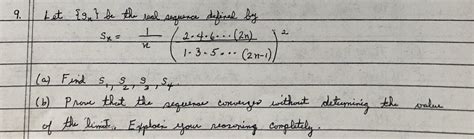 9. Let {Sn} be the real sequence defined by
Sn = 1/n (2·4·6···(2n) / 1·3·5···(2n-1))²
(a) Find S1, S2, S3, S4
(b) Prove that the sequence converges without determining the value
of the limit. Explain your reasoning completely.